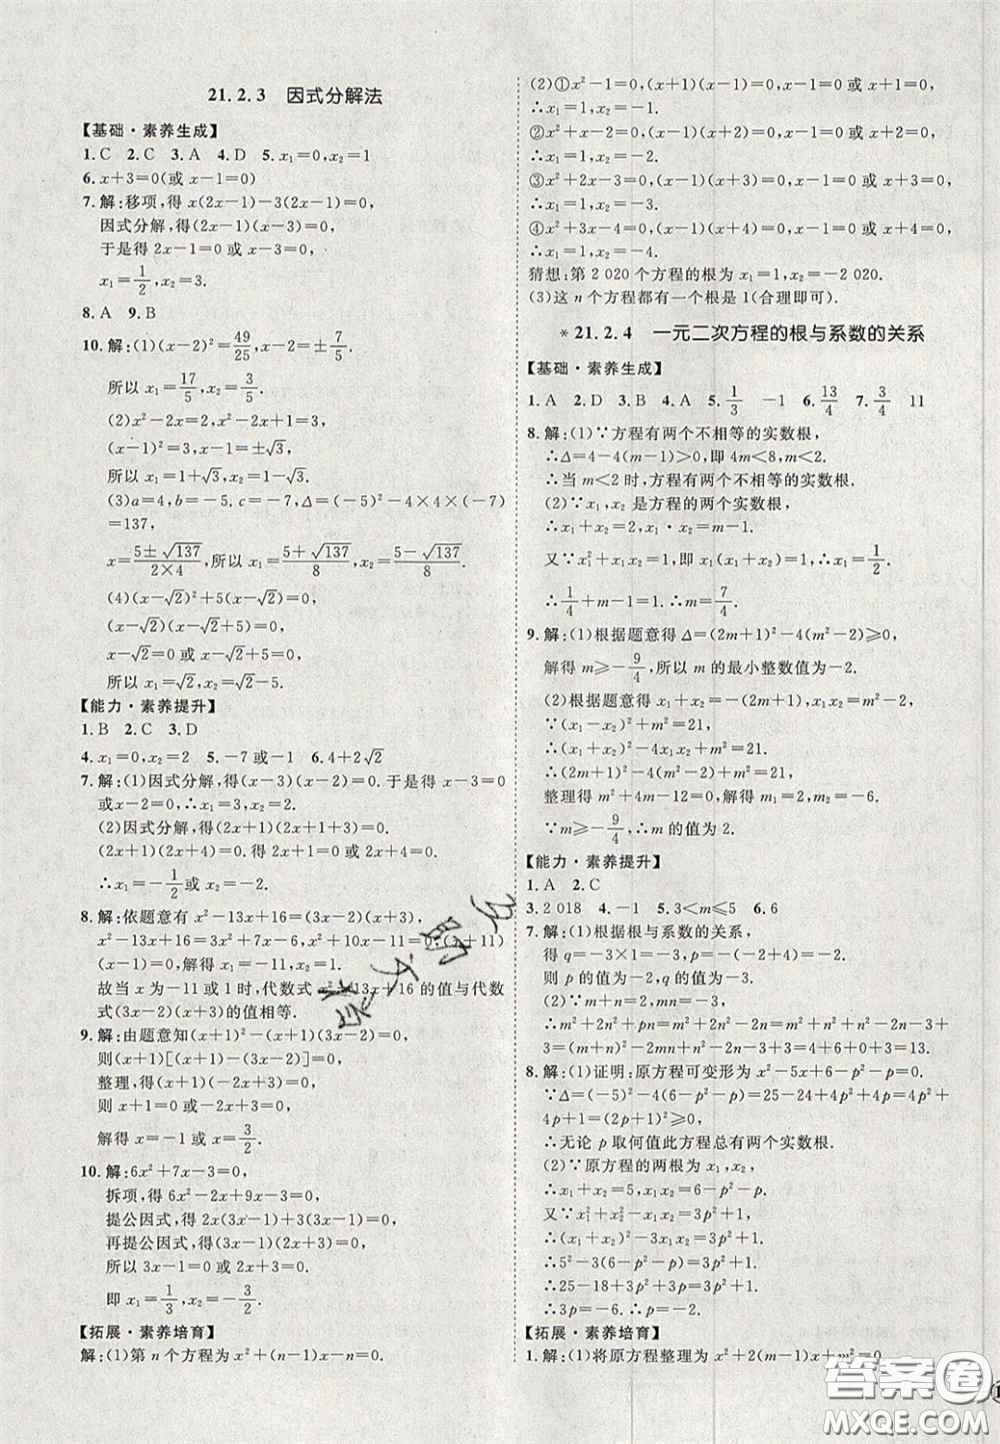 21.2.3 因式分解法
【基础·素养生成】
1.C 2.C 3.A 4.D 5.x₁=0,x₂=1
6.x+3=0(或 x-1=0)
7.解:移项,得 x(2x-1)-3(2x-1)=0,
因式分解,得(2x-1)(x-3)=0,
于是得 2x-1=0 或 x-3=0,
x₁=1/2,x₂=3.
8.A 9.B
10.解:(1)(x-2)²=49/25,x-2=±7/5,
所以 x₁=17/5,x₂=3/5.
(2)x²-2x=2,x²-2x+1=3,
(x-1)²=3,x-1=±√3,
所以 x₁=1+√3,x₂=1-√3.
(3)a=4,b=-5,c=-7,Δ=(-5)²-4×4×(-7)
=137,
x=(5±√137)/(2×4),所以 x₁=(5+√137)/8,x₂=(5-√137)/8.
(4)(x-√2)²+5(x-√2)=0,
(x-√2)(x-√2+5)=0,
x-√2=0 或 x-√2+5=0,
所以 x₁=√2,x₂=√2-5.
【能力·素养提升】
1.B 2.C 3.D
4.x₁=0,x₂=2 5.-7 或-1 6.4+2√2
7.解:(1)因式分解,得(x-3)(x-2)=0.于是得 x-3=0
或 x-2=0,∴x₁=3,x₂=2.
(2)因式分解,得(2x+1)(2x+1+3)=0,
(2x+1)(2x+4)=0,2x+1=0 或 2x+4=0,
∴x₁=-1/2,x₂=-2.
8.解:依题意有 x²-13x+16=(3x-2)(x+3),
x²-13x+16=3x²+7x-6,x²+10x-11=0,(x+11)
(x-1)=0,解得 x₁=-11,x₂=1.
故当 x 为-11 或 1 时,代数式 x²-13x+16 的值与代数
式(3x-2)(x+3)的值相等.
9.解:由题意知(x+1)²-(x+1)(3x-2)=0,
则(x+1)[(x+1)-(3x-2)]=0,
整理,得(x+1)(-2x+3)=0,
则 x+1=0 或-2x+3=0,
解得 x=-1 或 x=3/2.
10.解:6x²+7x-3=0,
拆项,得 6x²-2x+9x-3=0,
提公因式,得 2x(3x-1)+3(3x-1)=0,
再提公因式,得(3x-1)(2x+3)=0,
所以 3x-1=0 或 2x+3=0,
即 x₁=1/3,x₂=-3/2.
【拓展·素养培育】
解:(1)第 n 个方程为 x²+(n-1)x-n=0.
(2)①x²-1=0,(x+1)(x-1)=0,x+1=0 或 x-1=0,
∴x₁=1,x₂=-1.
②x²+x-2=0,(x+2)(x-1)=0,x-1=0 或 x+2=0,
∴x₁=1,x₂=-2.
③x²+2x-3=0,(x+3)(x-1)=0,x-1=0 或 x+3=0,
∴x₁=1,x₂=-3.
④x²+3x-4=0,(x+4)(x-1)=0,x-1=0 或 x+4=0,
∴x₁=1,x₂=-4.
猜想:第 2 020 个方程的根为 x₁=1,x₂=-2 020.
(3)这 n 个方程都有一个根是 1(合理即可).
*21.2.4 一元二次方程的根与系数的关系
【基础·素养生成】
1.A 2.D 3.B 4.A 5.1/3 -1 6.13/4 7.3/4 11
8.解:(1)∵方程有两个不相等的实数根,
∴Δ=4-4(m-1)>0,即 4m<8,m<2,
∴当 m<2 时,方程有两个不相等的实数根.
(2)∵x₁,x₂ 是方程的两个实数根,
∴x₁+x₂=2,x₁·x₂=m-1.
又∵x₁²+x₁x₂=1,即 x₁(x₁+x₂)=1,∴x₁=1/2.
∴1/4+m-1=1.∴m=7/4.
9.解:(1)根据题意得 Δ=(2m+1)²-4(m²-2)≥0,
解得 m≥-9/4,所以 m 的最小整数值为-2.
(2)根据题意得 x₁+x₂=-(2m+1),x₁x₂=m²-2,
∵(x₁-x₂)²+m²=21,
∴(x₁+x₂)²-4x₁x₂+m²=21,
∴(2m+1)²-4(m²-2)+m²=21,
整理得 m²+4m-12=0,解得 m₁=2,m₂=-6.
∵m≥-9/4,∴m 的值为 2.
【能力·素养提升】
1.A 2.C
3.2 018 4.-1 5.3<m≤5 6.6
7.解:(1)根据根与系数的关系,
得 q=-3×1=-3,-p=-3+1=-2,∴p=2.
则 p 的值为-2,q 的值为-3.
(2)∵m+n=-2,mn=-3,
∴m²+2n²+pmn+n+3=m²+2n²-2mn+n²-n²+n
+3=13=(m-n)²+n²+n+3=4+6+0+3=13.
8.解:(1)证明:原方程可变形为 x²-5x+6-p²-p=0.
∵Δ=(-5)²-4(6-p²-p)=25-24+4p²+4p=4p²+
4p+1=(2p+1)²≥0,
∴无论 p 取何值此方程总有两个实数根.
(2)∵原方程的两根为 x₁,x₂,
∴x₁+x₂=5,x₁x₂=6-p²-p.
又∵x₁²+x₂²-x₁x₂=3p²+1,
∴(x₁+x₂)²-3x₁x₂=3p²+1,
∴5²-3(6-p²-p)=3p²+1,
∴25-18+3p²+3p=3p²+1,
∴3p=-6,∴p=-2.
【拓展·素养培育】
1.解:(1)将原方程整理为 x²+2(m-1)x+m²=0.
答案圈
MXQE.COM